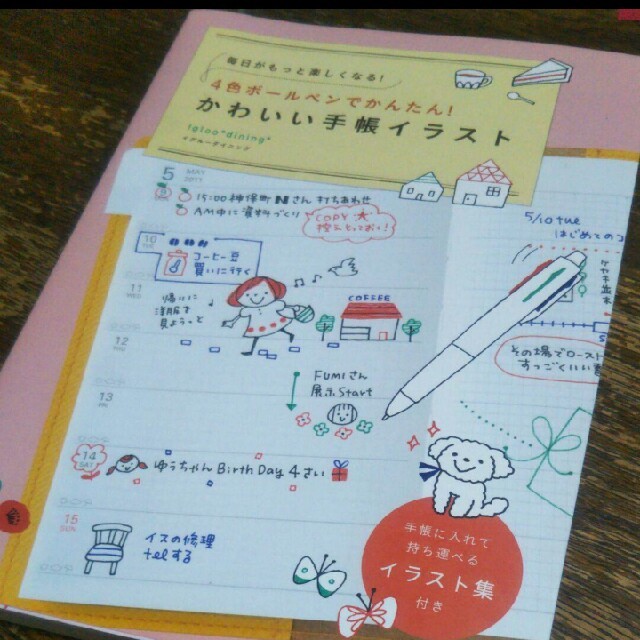 毎日がもっと楽しくなる!
4色ボールペンでかんたん!
かわいい手帳イラスト
igloo*dining*
イグルーダイニング
5 MAY
2011
15:00 神保町 Nさん 打ちあわせ
AM中に資料づくり
COPY ★
控えとっておく!
10
コーヒー豆
買いに行く
11
帰りに
洋服も
見ようっと
COFFEE
12
FUMIさん
展示Start
13
14
SAT
ゆうちゃん Birth Day 4さい
15
SUN
イスの修理
telする
5/10 tue
はじめてのコ
その場でロースト
すっごくいい香
手帳に入れて
持ち運べる
イラスト集
付き